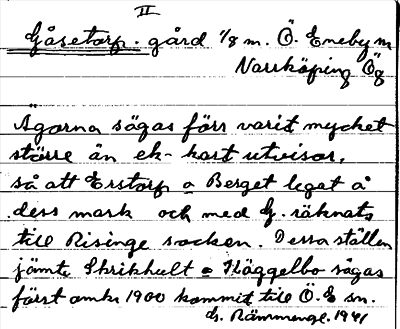 II
Gåsetorp. gård 1/8 m. Ö. Eneby sn
Norrköping Ög
Ägorna sägas förr varit mycket
större än ek-kart utvisar,
så att Erstorp o Berget legat å
dess mark och med G. räknats
till Risinge socken. Dessa ställen
jämte Skrikhult o Häggelbo sägas
först omkr 1900 kommit till Ö. E sn.
G. Rämmenge. 1941